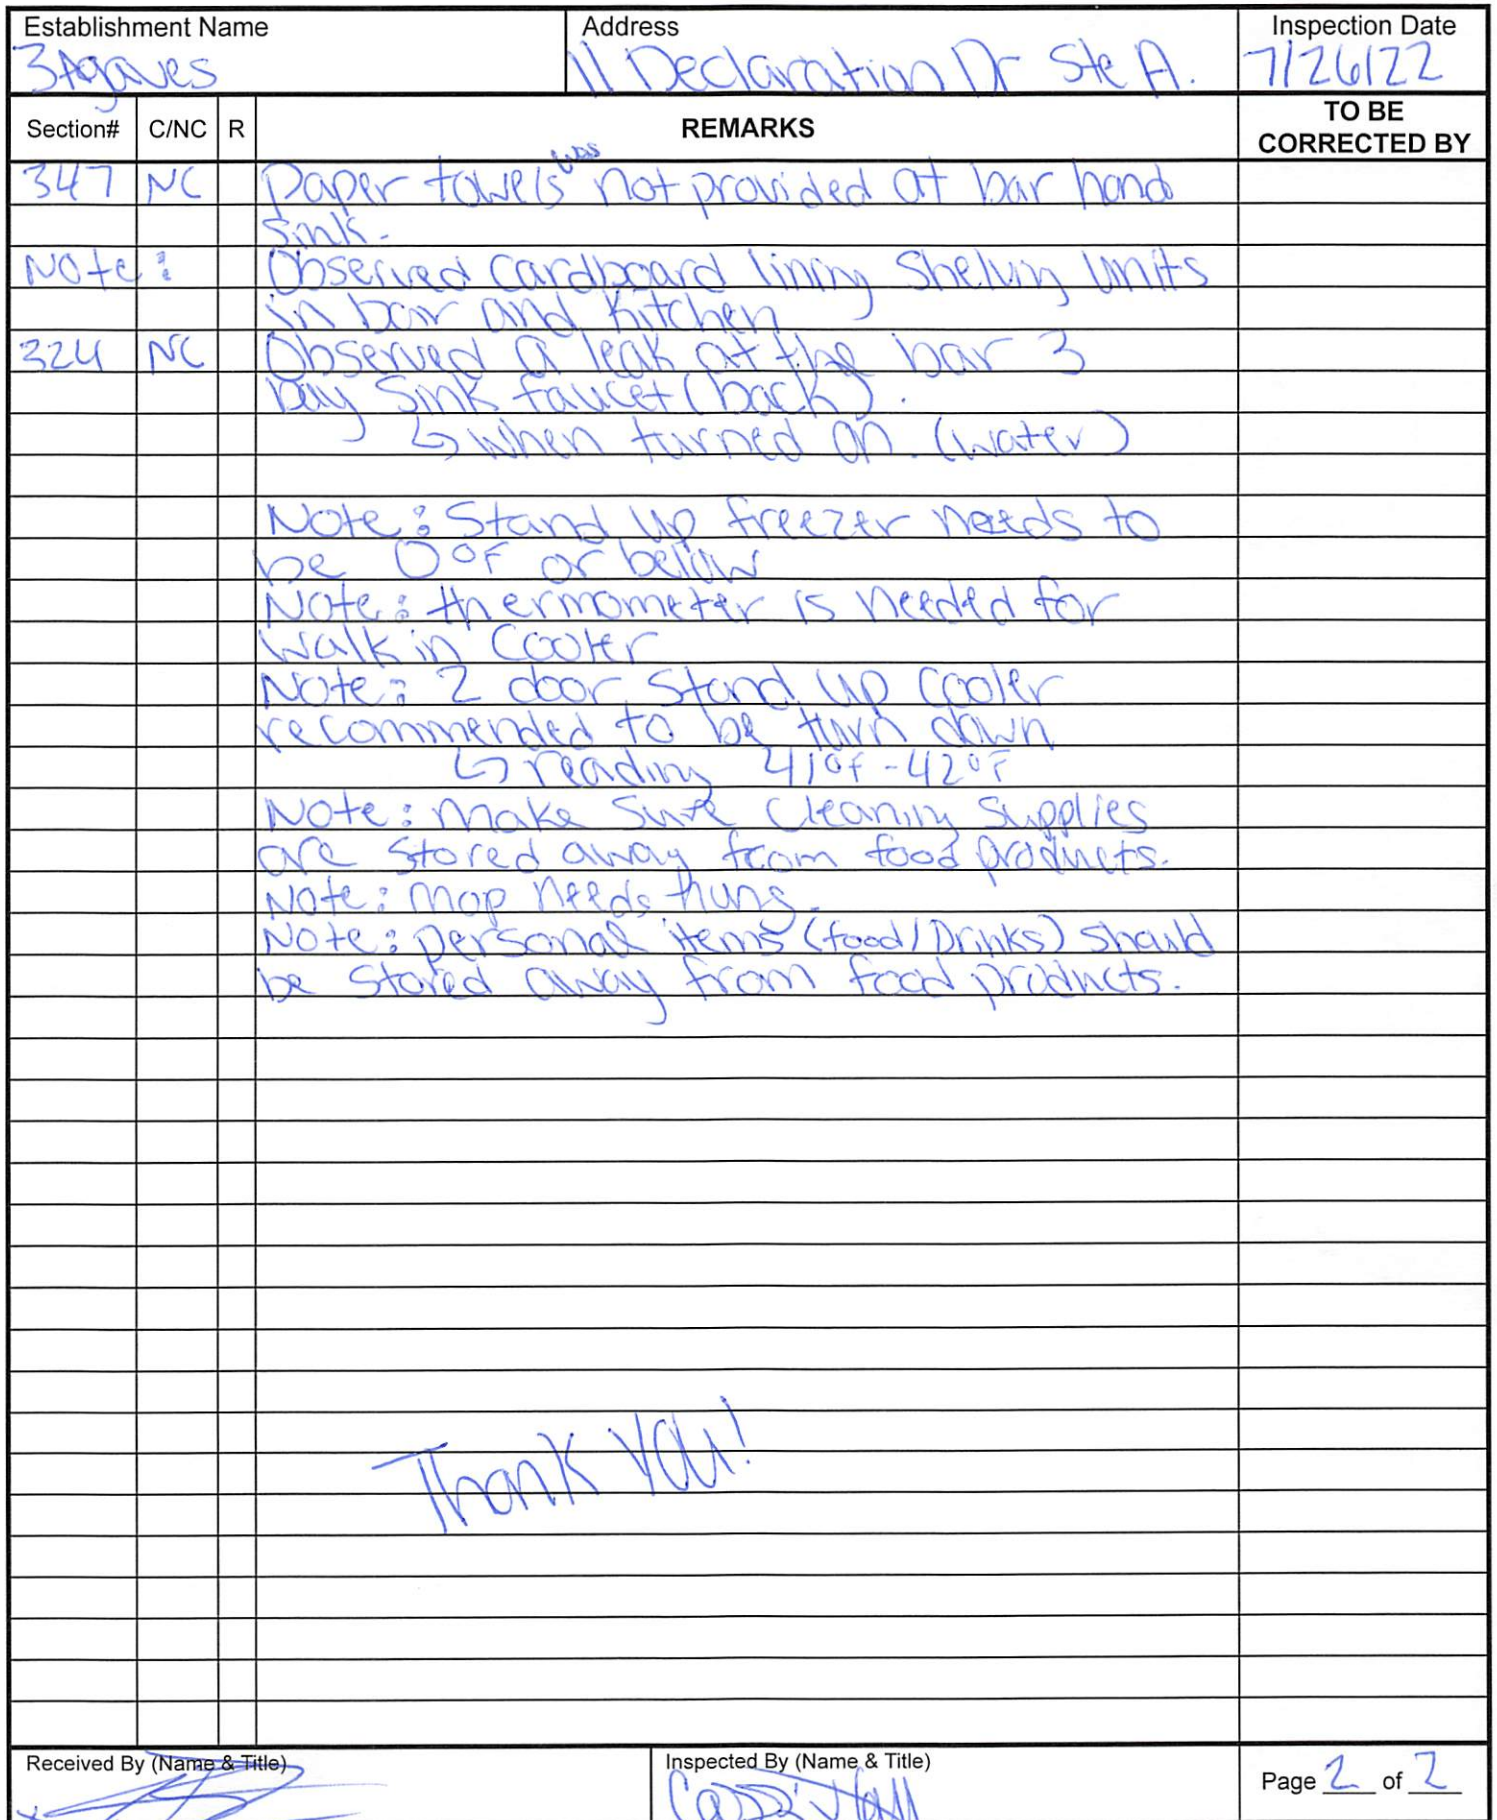 Establishment Name Address Inspection Date
3 Agaves 11 Declaration Dr Ste A. 7/26/22
Section# C/NC R REMARKS TO BE CORRECTED BY
was
347 NC Paper towels not provided at bar hand
sink.
Note: Observed cardboard lining shelving units
in bar and kitchen
324 NC Observed a leak at the bar 3
bay sink faucet (back).
↳ when turned on. (water)
Note: Stand up freezer needs to
be 0°F or below
Note: thermometer is needed for
walk in cooler
Note: 2 door stand up cooler
recommended to be turn down
↳ reading 41°F-42°F
Note: Make sure cleaning supplies
are stored away from food products.
Note: Mop needs hung.
Note: personal items (food/Drinks) should
be stored away from food products.
Thank you!
Received By (Name & Title) Inspected By (Name & Title)
Cassi Hall
Page 2 of 2